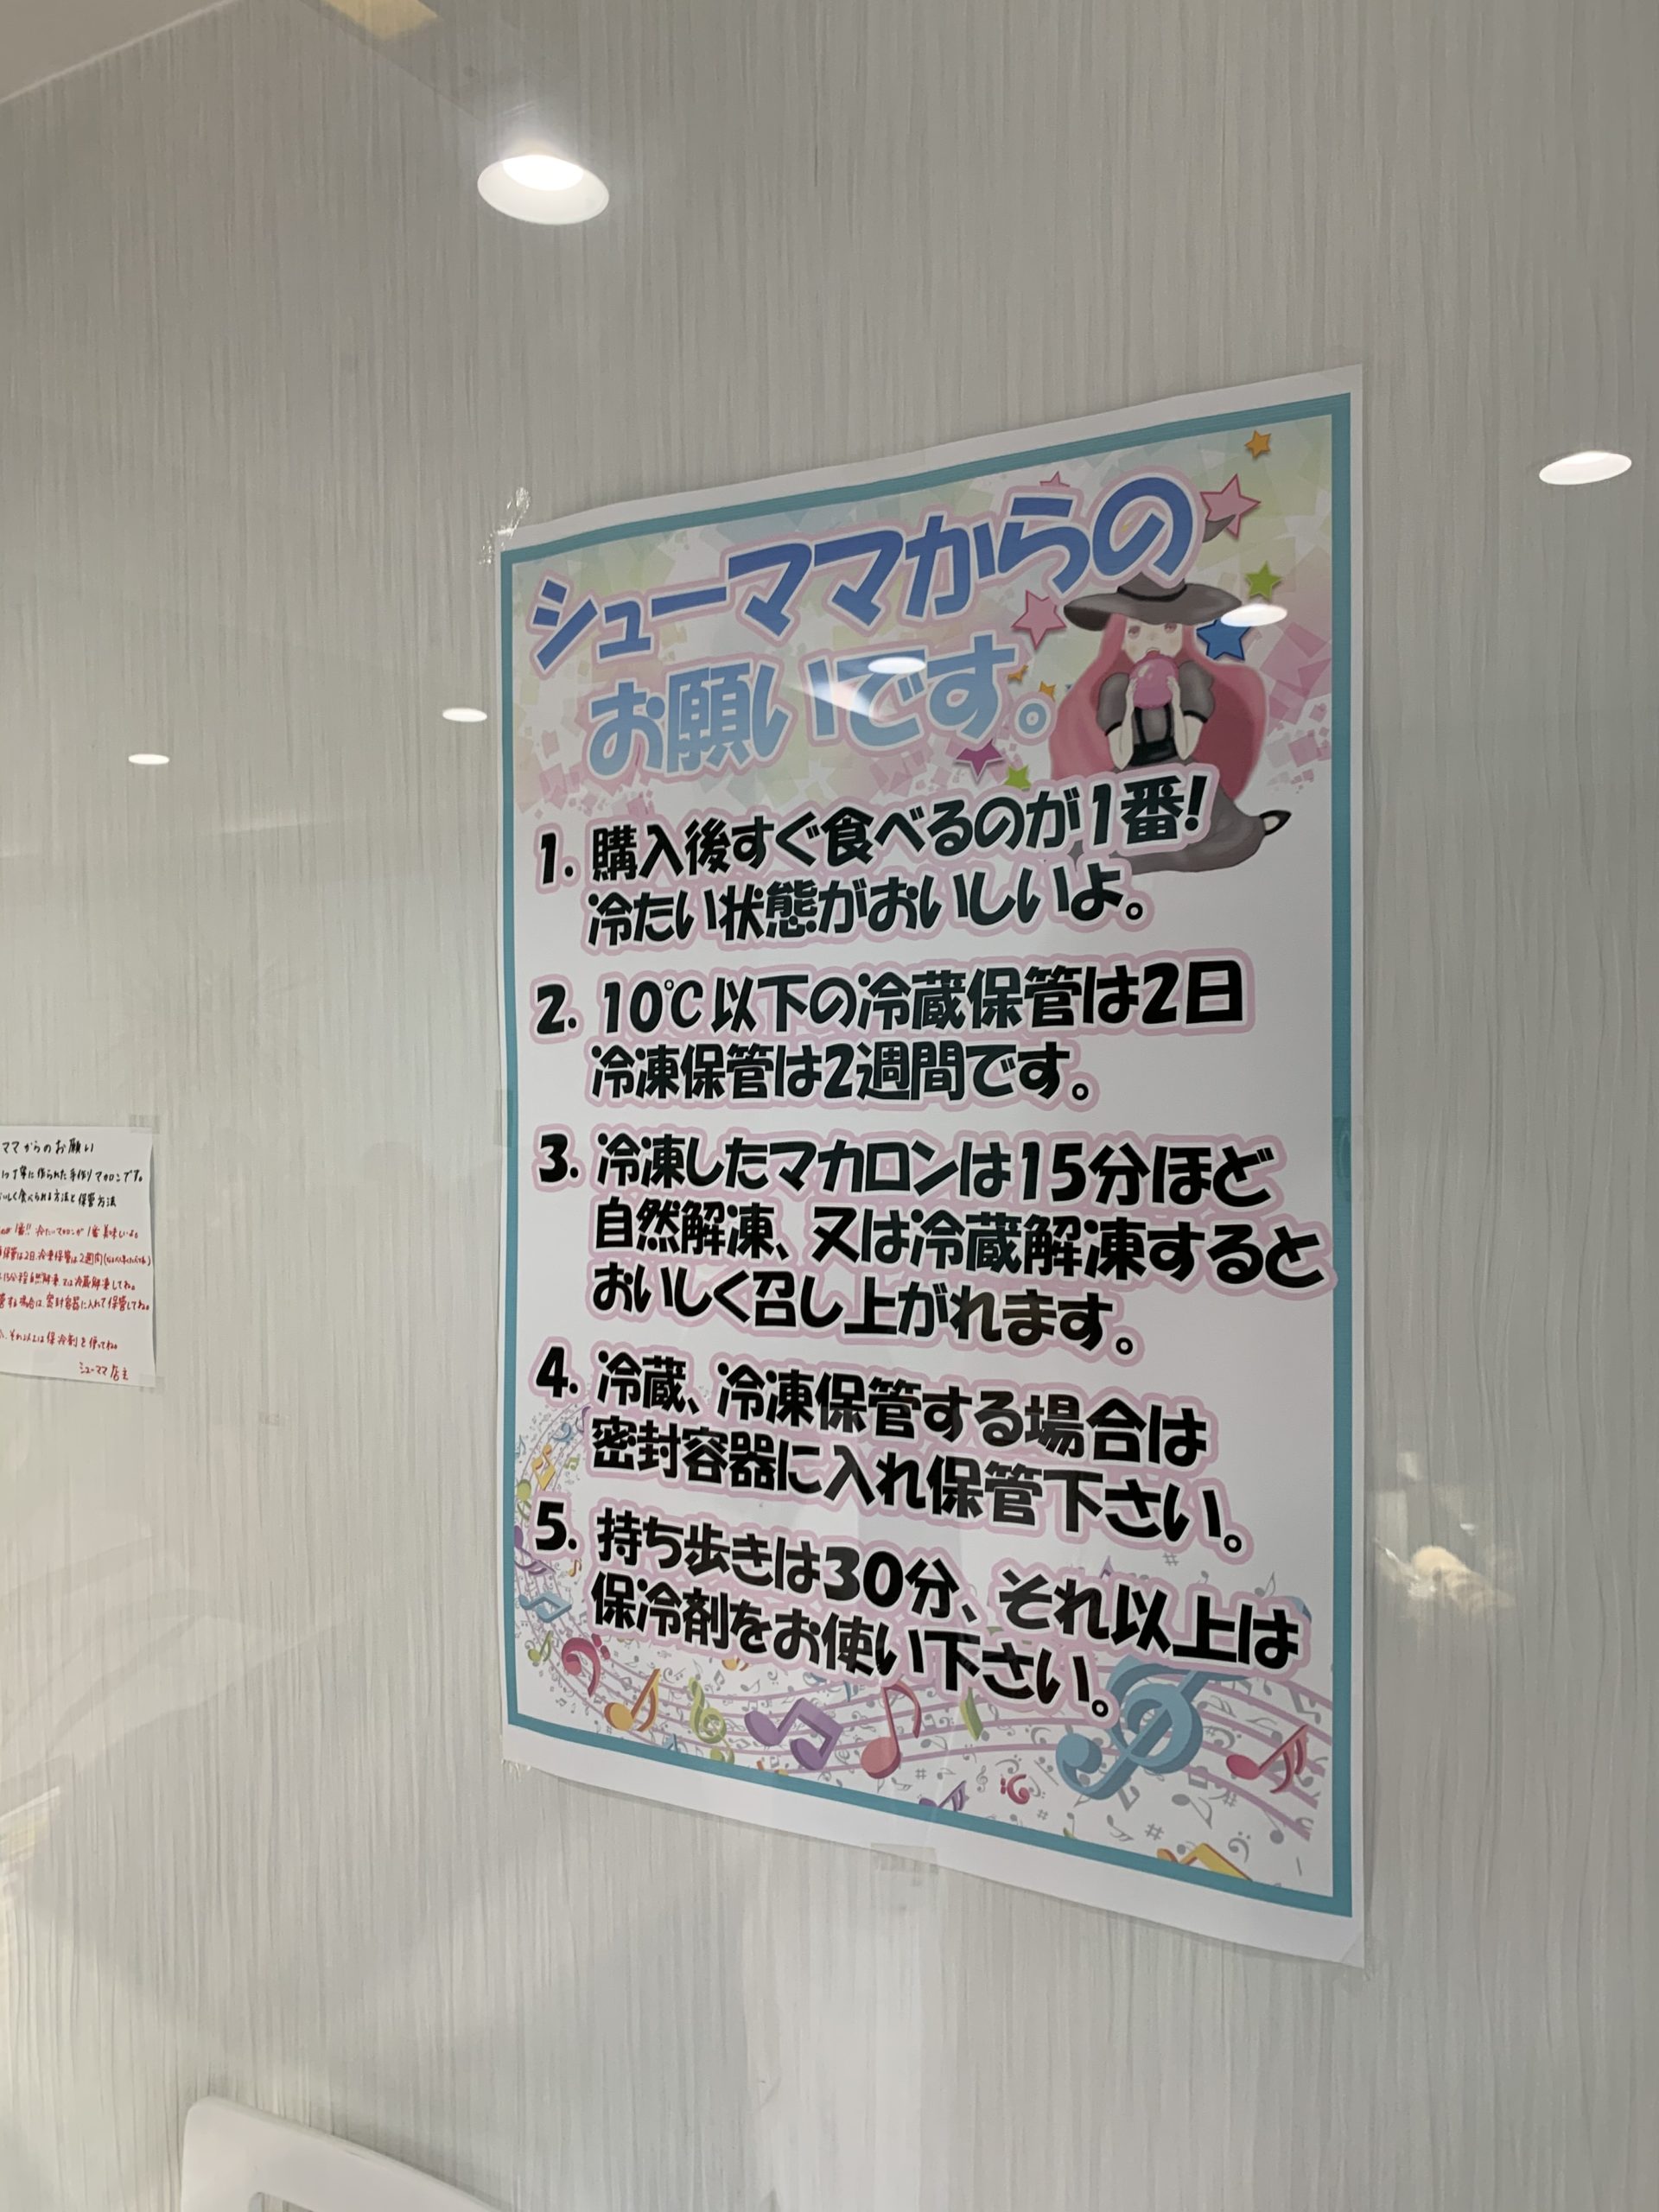 シューママからの
お願いです。
1. 購入後すぐ食べるのが1番!
冷たい状態がおいしいよ。
2. 10℃以下の冷蔵保管は2日
冷凍保管は2週間です。
3. 冷凍したマカロンは15分ほど
自然解凍、又は冷蔵解凍すると
おいしく召し上がれます。
4. 冷蔵、冷凍保管する場合は
密封容器に入れ保管下さい。
5. 持ち歩きは30分、それ以上は
保冷剤をお使い下さい。
ママからのお願い
丁寧に作られた手作りマカロンです。
しく食べられる方法と保管方法
1番!! 冷たいマカロンが1番美味しいよ。
保管は2日、冷凍保管は2週間
15分程自然解凍又は冷蔵解凍してね。
する場合は、密封容器に入れて保管してね。
それ以上は保冷剤を使ってね。
シューママ店主